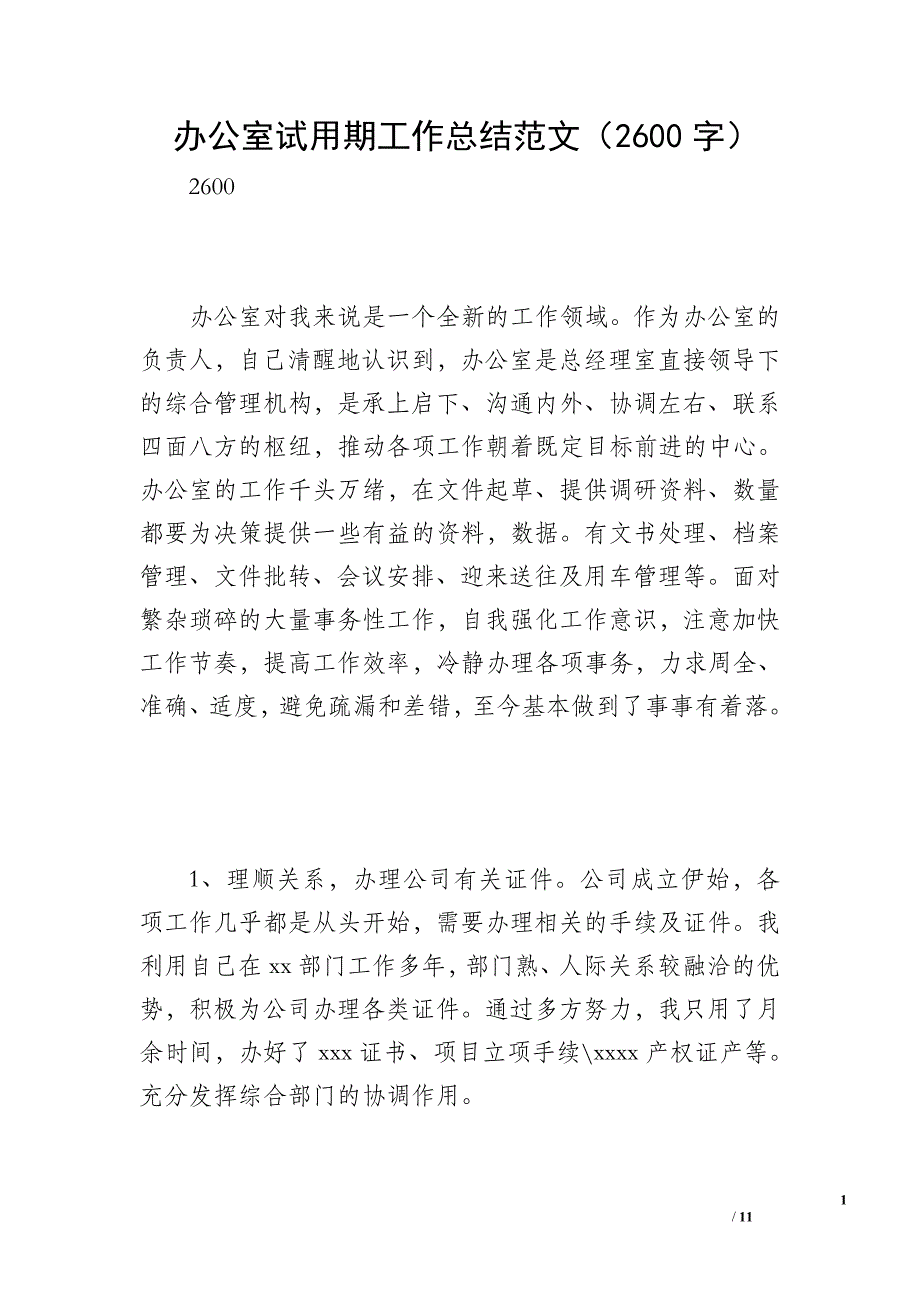 办公室试用期工作总结范文（2600 字）
2600
办公室对我来说是一个全新的工作领域。作为办公室的
负责人，自己清醒地认识到，办公室是总经理室直接领导下
的综合管理机构，是承上启下、沟通内外、协调左右、联系
四面八方的枢纽，推动各项工作朝着既定目标前进的中心。
办公室的工作千头万绪，在文件起草、提供调研资料、数量
都要为决策提供一些有益的资料，数据。有文书处理、档案
管理、文件批转、会议安排、迎来送往及用车管理等。面对
繁杂琐碎的大量事务性工作，自我强化工作意识，注意加快
工作节奏，提高工作效率，冷静办理各项事务，力求周全、
准确、适度，避免疏漏和差错，至今基本做到了事事有着落。
1、理顺关系，办理公司有关证件。公司成立伊始，各
项工作几乎都是从头开始，需要办理相关的手续及证件。我
利用自己在 xx 部门工作多年，部门熟、人际关系较融洽的优
势，积极为公司办理各类证件。通过多方努力，我只用了月
余时间，办好了 xxx 证书、项目立项手续\xxxx 产权证产等。
充分发挥综合部门的协调作用。
1
/ 11